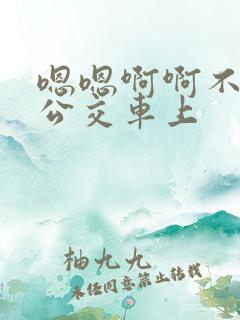 嗯嗯啊啊不
公交车上
柚九九
未经同意禁止转载